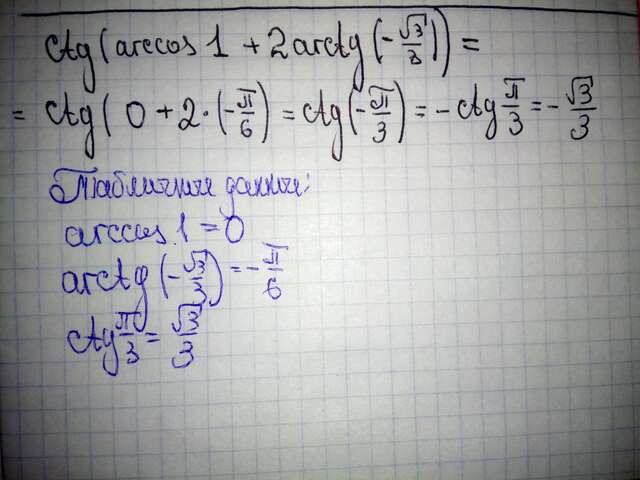 ctg(arccos 1 + 2arctg(-√3/3)) =
= ctg( 0 + 2·(-π/6) = ctg(-π/3) = -ctg π/3 = -√3/3
Табличные данные:
arccos 1 = 0
arctg(-√3/3) = -π/6
ctg π/3 = √3/3